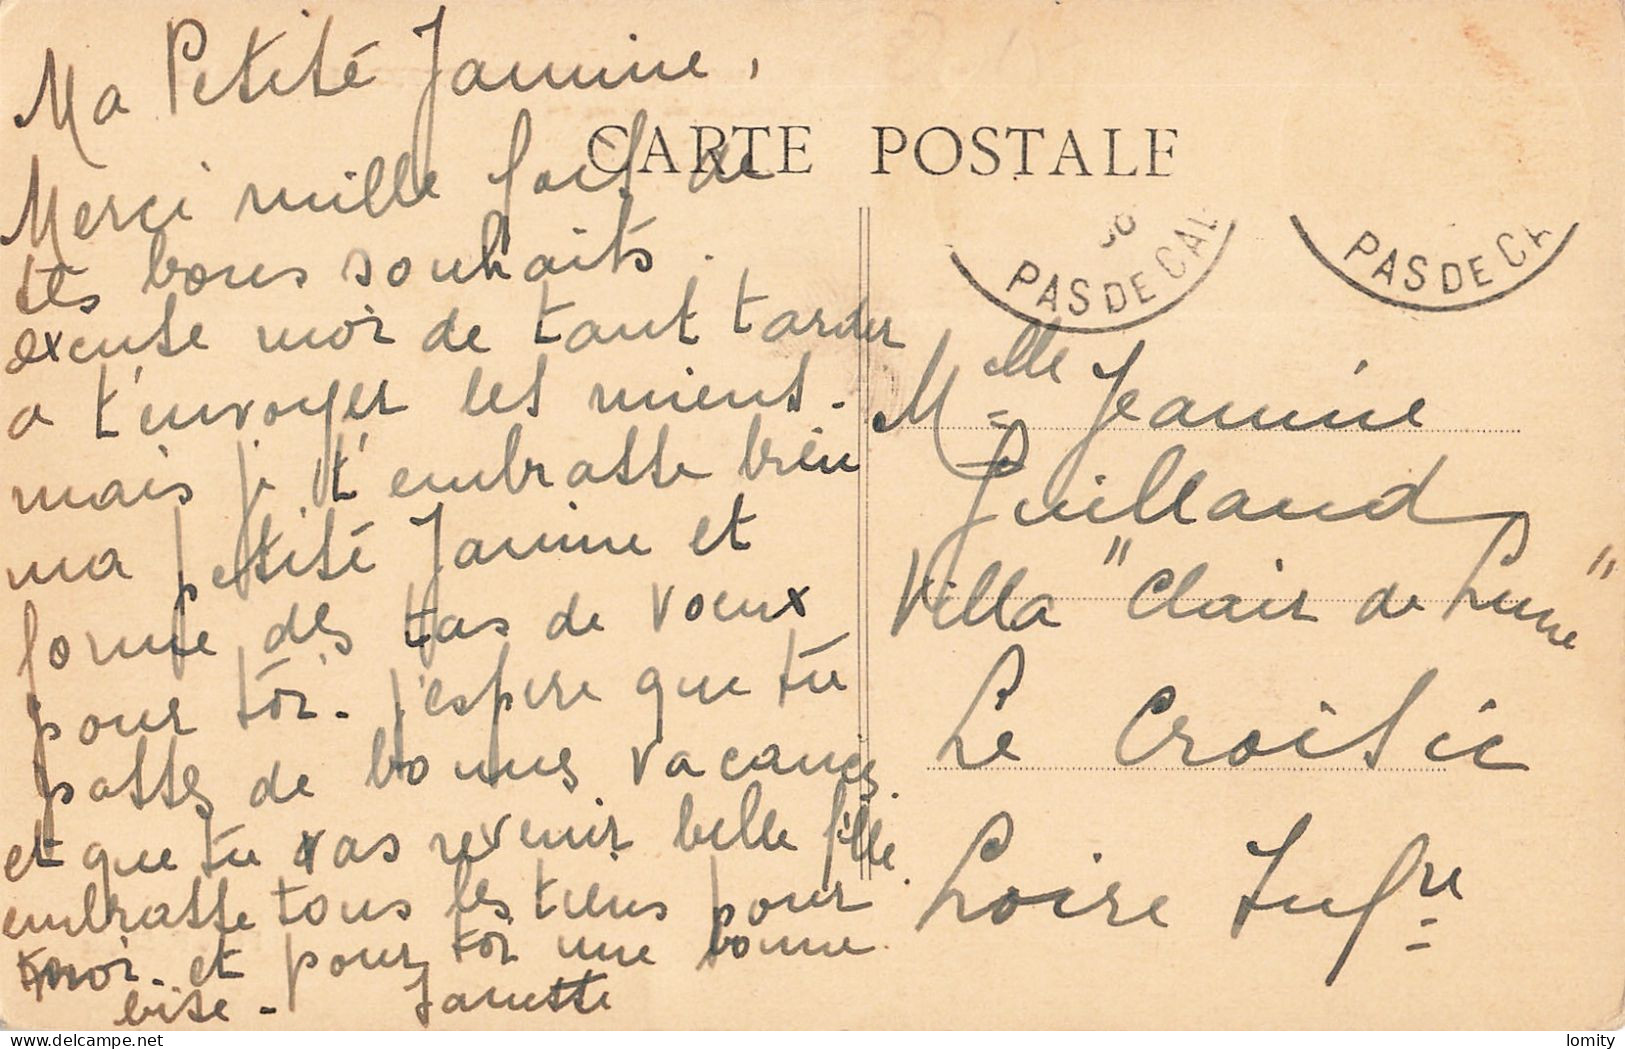 Ma Petite Janine,
CARTE POSTALE
Merci mille fois de
tes bons souhaits.
excuse moi de tant tarder
a t'envoyer les miens.
mais je t'embrasse bien
ma petite Janine et
forme des tas de voeux
pour toi. j'espere que tu
passes de bonnes vacances.
et que tu vas revenir belle fille.
embrasse tous les tiens pour
moi. et pour toi une bonne
bise - Janette
PAS DE CAL
PAS DE CA
Melle Jeanine
Guillaud
Villa "Clair de Lune"
Le Croisic
Loire Infre
delcampe.net
lomity